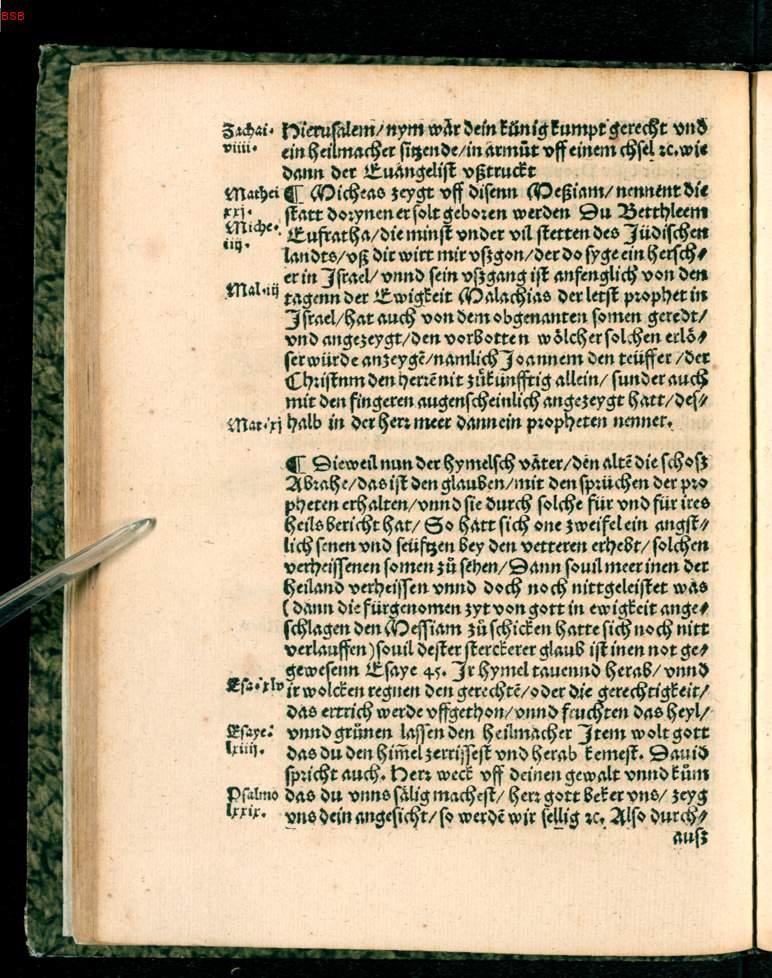 BSB
Zachai.
viiii.
Hierusalem/nym wår dein künig kumpt gerecht vnd
ein heilmacher sitzende/in armůt vff einem chsel ꝛc. wie
dann der Euangelist vßtruckt
Mathei
xxj.
Miche.
iij.
¶ Micheas zeygt vff disenn Meßiam/nennent die
statt dorynen er solt geboren werden Du Betthleem
Eufratha/die minst vnder vil stetten des Jüdischen
landts/vß dir wirt mir vßgon/der do syge ein hersch⸗
er in Israel/vnnd sein vßgang ist anfenglich von den
Mal.iij
tagenn der Ewigkeit Malachias der letst prophet in
Israel/hat auch von dem obgenanten somen geredt/
vnd angezeygt/den vorbotten wölcher solchen erlö⸗
ser würde anzeygē/namlich Joannem den teüffer/der
Christnm den herrē nit zůkünfftig allein/sunder auch
mit den fingeren augenscheinlich angezeygt hatt/des⸗
Mat.xj
halb in der herr meer dann ein propheten nennet.
¶ Dieweil nun der hymelsch våter/den altē die schosz
Abrahe/das ist den glauben/mit den sprüchen der pro
pheten erhalten/vnnd sie durch solche für vnd für ires
heils bericht hat/So hatt sich one zweifel ein angst⸗
lich senen vnd seüftzen bey den vetteren erhebt/solchen
verheissenen somen zů sehen/Dann souil meer inen der
heiland verheissen vnnd doch noch nitt geleistet was
(dann die fürgenomen zyt von gott in ewigkeit ange⸗
schlagen den Messiam zů schicken hatte sich noch nitt
verlauffen)souil dester sterckerer glaub ist inen not ge⸗
gewesenn Esaye 45. Ir hymel tauennd herab/vnnd
Esa.xlv
ir wolcken regnen den gerechtē/oder die gerechtigkeit/
das ertrich werde vffgethon/vnnd fruchten das heyl/
Esaye.
lxiiij.
vnnd grünen lassen den heilmacher Item wolt gott
das du den him̄el zerrissest vnd herab kemest. Dauid
spricht auch. Herr weck vff deinen gewalt vnnd küm
Psalmo
lxxix.
das du vnns sålig machest/herr gott beker vns/zeyg
vns dein angesicht/so werdē wir sellig ꝛc. Also durch⸗
ausz